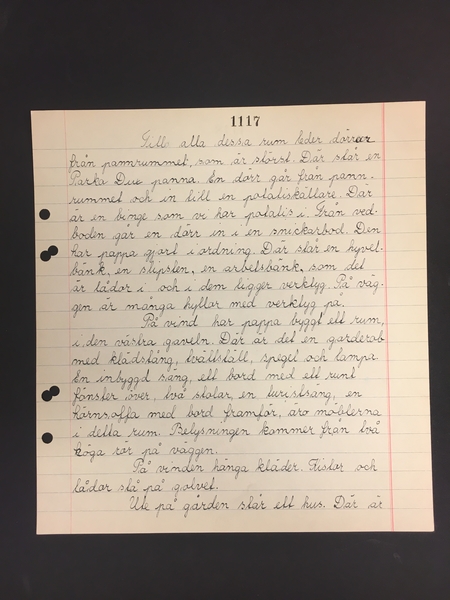 1117
Till alla dessa rum leder dörrar
från pannrummet, som är störst. Där står en
Parka Duo panna. En dörr går från pann-
rummet och in till en potatiskällare. Där
är en binge som vi har potatis i. Från ved-
boden går en dörr in i en snickarbod. Den
har pappa gjort i ordning. Där står en hyvel-
bänk, en slipsten, en arbetsbänk, som det
är lådor i och i dem ligger verktyg. På väg-
gen är många hyllor med verktyg på.
På vind har pappa byggt ett rum,
i den västra gaveln. Där är det en garderob
med klädstång, tvättställ, spegel och lampa.
En inbyggd säng, ett bord med ett runt
fönster över, två stolar, en turistsäng, en
hörnsoffa med bord framför, äro möblerna
i detta rum. Belysningen kommer från två
höga rör på väggen.
På vinden hänga kläder. Kistor och
lådor stå på golvet.
Ute på gården står ett hus. Där är